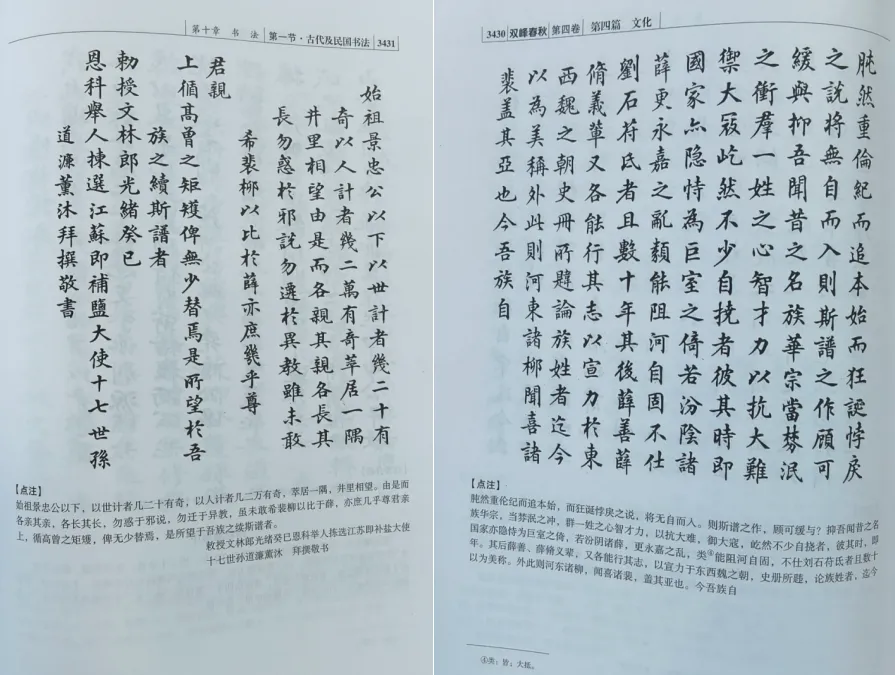 3430 双峰春秋 第四卷 第四篇 文化
肫然重倫紀而追本始而狂誕悖戾
之說將無自而入則斯譜之作顧可
緩與抑吾聞昔之名族華宗當棼泯
之衝羣一姓之心智才力以抗大難
禦大寇屹然不少自撓者彼其時即
國家亦隐恃為巨室之倚若汾陰諸
薛更永嘉之亂類能阻河自固不仕
劉石苻氏者且數十年其後薛善薛
脩義輩又各能行其志以宣力於東
西魏之朝史冊所韙論族姓者迄今
以為美稱外此則河東諸柳聞喜諸
裴盖其亞也今吾族自
【点注】
肫然重伦纪而追本始,而狂诞悖戾之说,将无自而入。则斯谱之作,顾可缓与?抑吾闻昔之名
族华宗,当棼泯之冲,群一姓之心智才力,以抗大难,御大寇,屹然不少自挠者,彼其时,即
国家亦隐恃为巨室之倚,若汾阴诸薛,更永嘉之乱,类④能阻河自固,不仕刘石苻氏者且数十
年。其后薛善、薛脩义辈,又各能行其志,以宣力于东西魏之朝,史册所韪,论族姓者,迄今
以为美称。外此则河东诸柳,闻喜诸裴,盖其亚也。今吾族自
④类:皆;大抵。
第十章 书 法 第一节·古代及民国书法 3431
始祖景忠公以下以世計者幾二十有
奇以人計者幾二萬有奇萃居一隅
井里相望由是而各親其親各長其
長勿惑於邪說勿遷於異教雖未敢
希裴柳以比於薛亦庶幾乎尊
君親
上循高曾之矩矱俾無少替焉是所望於吾
族之續斯譜者
勅授文林郎光緒癸巳
恩科舉人揀選江蘇即補鹽大使十七世孫
道源薰沐拜撰敬書
【点注】
始祖景忠公以下,以世计者几二十有奇,以人计者几二万有奇,萃居一隅,井里相望。由是而
各亲其亲,各长其长,勿惑于邪说,勿迁于异教,虽未敢希裴柳以比于薛,亦庶几乎尊君亲
上,循高曾之矩矱,俾无少替焉,是所望于吾族之续斯谱者。
敕授文林郎光绪癸巳恩科举人拣选江苏即补盐大使
十七世孙道濂薰沐 拜撰敬书